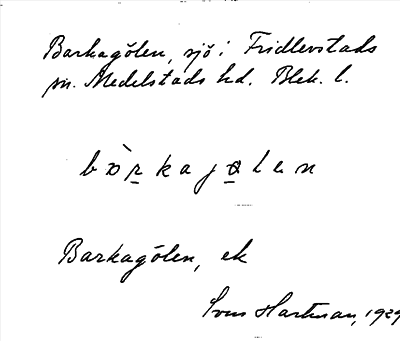 Barkagölen, sjö i Fridlevstads
sn. Medelstads hd. Blek. l.
bàrkajølen
Barkagölen, ek
Sven Hartman, 1929